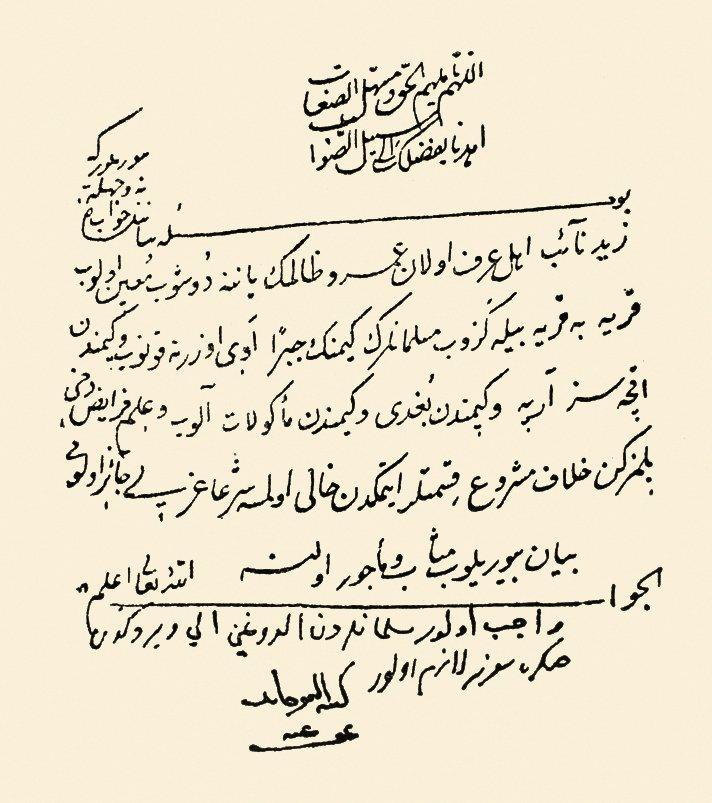 اللهم ملهم الحق و مسهل الصعاب
اهدنا بفضلك الى سبيل الصواب
بو مسئله بیاننده جواب
زيد نائب اهل عرف اولان عمرو ظالمك ياننه دوشوب معين اولوب
قريه به قريه بيله كزوب مسلمانلرك كيمنك جبرًا اوى اوزرينه قونوب و كيمندن
اقچه سز آرپه و كيمندن بغدى و كيمندن مأكولات آلوب و علم فرايض دخى
بلمزكن خلاف مشروع قسمتلر ايتمكدن خالى اولمسه شرعا عزلى جائز اولورمى
بيان بيوريلوب مثاب و مأجور اولنه
الجواب الله تعالى اعلم
واجب اولور مسلمانلردن الدوغنى الى ويردكدن
صكره لازم اولور
كتبه
عفى عنه